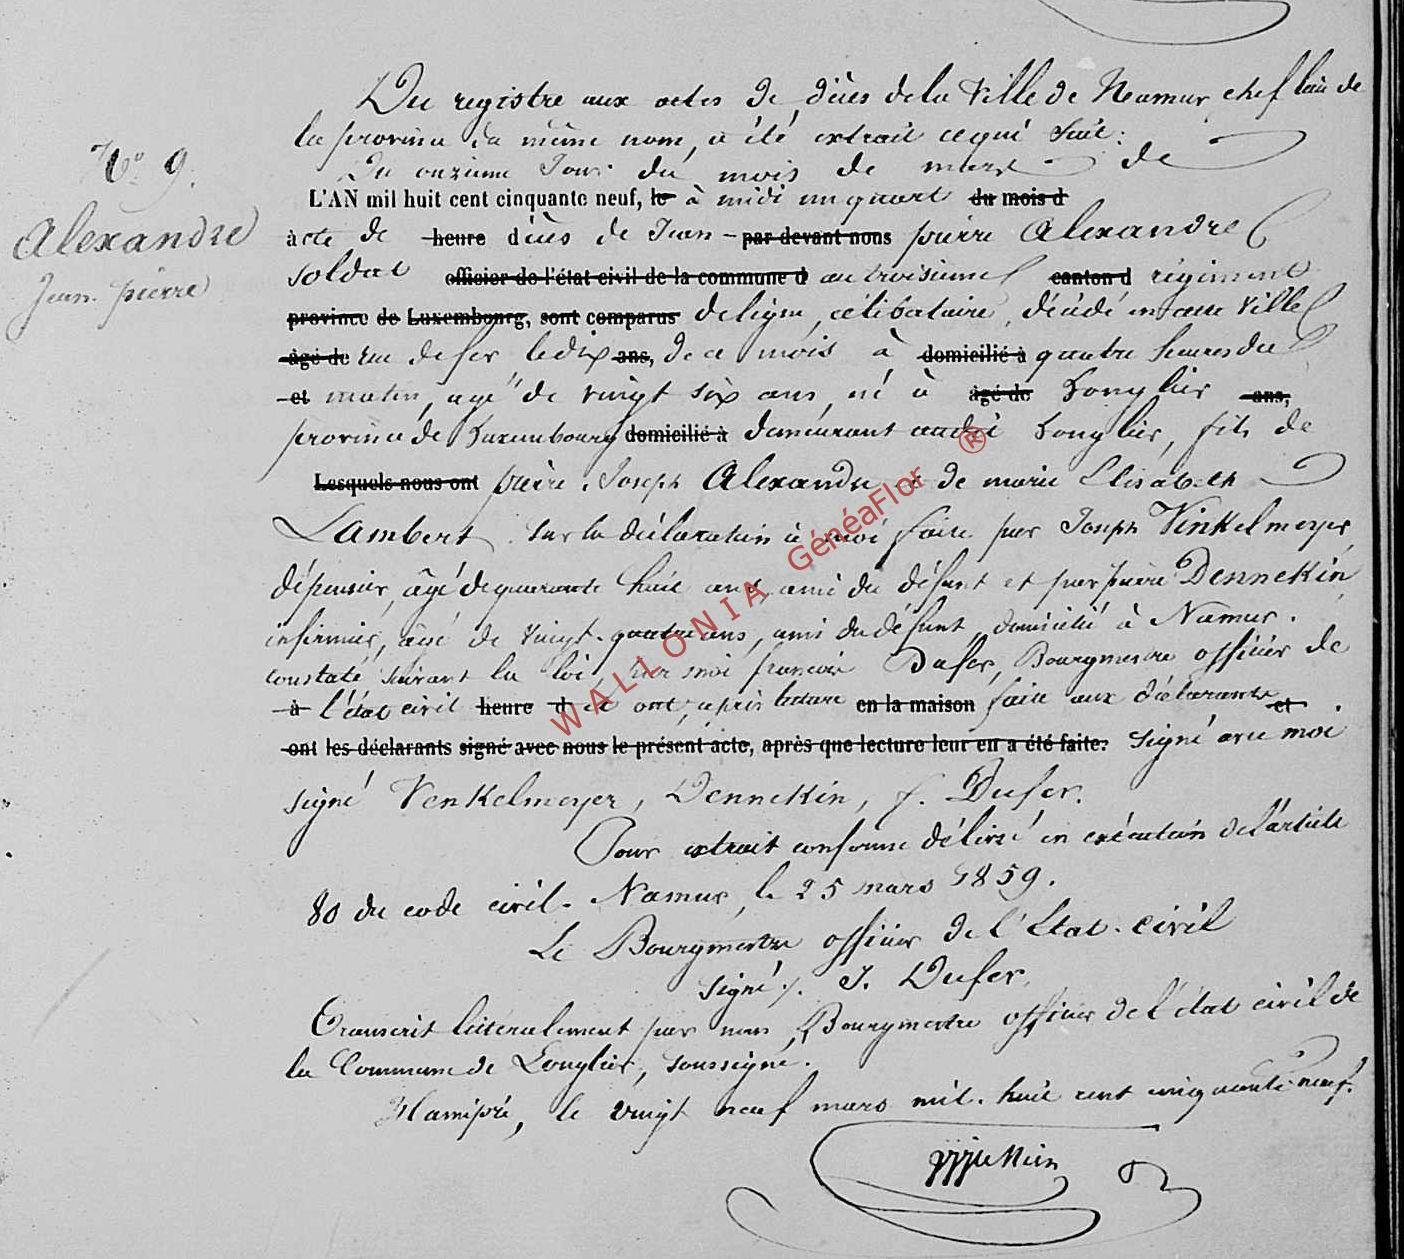 Du registre aux actes de décès de la Ville de Namur, chef lieu de
la province du même nom, a été extrait ce qui suit:
N° 9.
Du onzième Jour du mois de mars de
L'AN mil huit cent cinquante neuf, le à midi un quart du mois d
Alexandre
acte de heure décès de Jean par devant nous pierre Alexandre
Jean pierre
soldat officier de l'état civil de la commune d au troisième canton d régiment
province de Luxembourg, sont comparus de ligne, célibataire, décédé en cette Ville
âgé de rue de fer le dix ans, de ce mois à domicilié à quatre heures du
et matin, agé de vingt six ans, né à âgé de Longlier ans,
province de Luxembourg domicilié à demeurant audit Longlier, fils de
Lesquels nous ont pierre Joseph Alexandre et de marie Elisabeth
Lambert sur la déclaration à moi faite par Joseph Vinkelmeyer,
dépensier, âgé de quarante huit ans, ami du défunt et par pierre Dennekin
infirmier, âgé de vingt-quatre ans, ami du défunt, domicilié à Namur.
constaté suivant la loi, par moi françois Dufer, Bourgmestre officier de
à l'état civil heure d et ont, après lecture en la maison faite aux déclarants et
ont les déclarants signé avec nous le présent acte, après que lecture leur en a été faite. signé avec moi
signé Venkelmeyer, Dennekin, f. Dufer.
Pour extrait conforme délivré en exécution de l'article
80 du code civil. Namur, le 25 mars 1859.
Le Bourgmestre officier de l'Etat-civil
signé J. Dufer.
Transcrit littéralement par nous, Bourgmestre officier de l'état civil de
la Commune de Longlier, soussigné.
Hamipré, le vingt neuf mars mil-huit cent cinquante neuf.
WALLONIA GénéaFlor ®